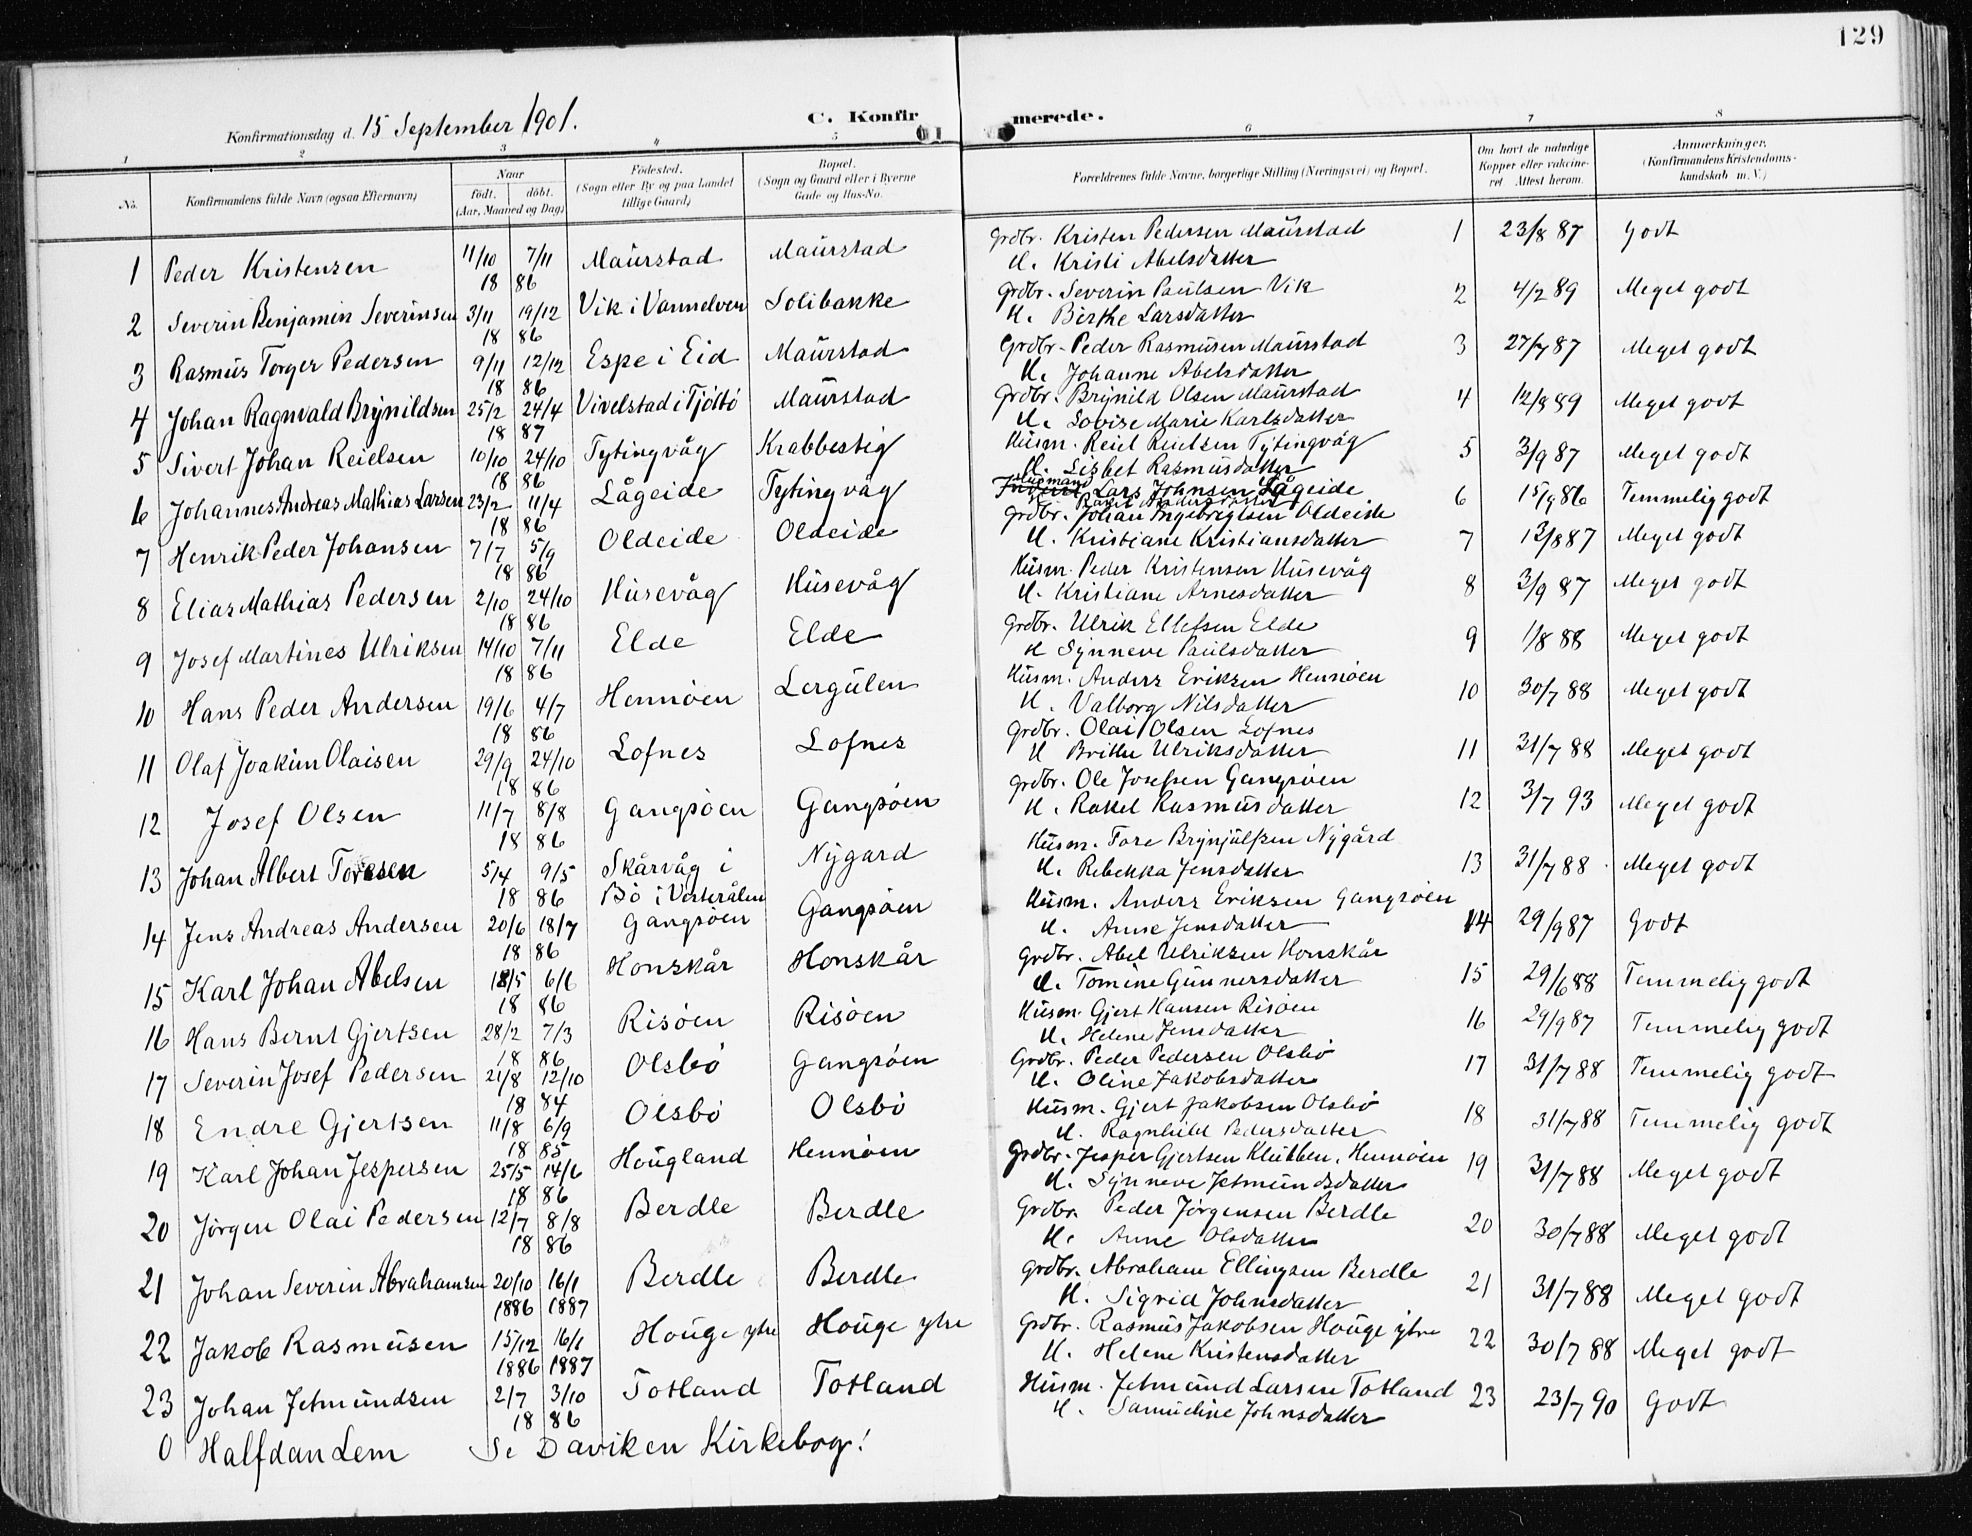 129
Konfirmationsdag d. 15 September 1901.
C. Konfirmerede.
1 2 3 4 5 6 7 8
No.
Konfirmandens fulde Navn (ogsaa Efternavn)
Naar
født. døbt.
(Aar, Maaned og Dag)
Fødested.
(Sogn eller By og paa Landet
tillige Gaard)
Bopæl.
(Sogn og Gaard eller i Byerne
Gade og Hus-No.
Forældrenes fulde Navne, borgerlige Stilling (Næringsvei) og Bopæl.
Om havt de naturlige
Kopper eller vakcine-
ret. Attest herom.
Anmærkninger.
(Konfirmandens Kristendoms-
kundskab m. V.)
1 Peder Kristensen 11/10 7/11 Maurstad Maurstad Grdbr. Kristen Pedersen Maurstad 1 23/8 87 Godt
18 86 H. Kristi Abelsdatter
2 Severin Benjamin Severinsen 3/11 19/12 Vik i Vannelven Solibakke Grdbr. Severin Paulsen Vik 2 4/2 89 Meget godt
18 86 H. Birthe Larsdatter
3 Rasmus Torger Pedersen 9/11 12/12 Espe i Eid Maurstad Grdbr. Peder Rasmusen Maurstad 3 27/7 87 Meget godt
18 86 H. Johanne Abelsdatter
4 Johan Ragnvald Brynildsen 25/2 24/4 Vivelstad i Tjötbö Maurstad Grdbr. Brynild Olsen Maurstad 4 12/8 89 Meget godt
18 87 H. Lovise Marie Karlsdatter
5 Sivert Johan Reielsen 10/10 24/10 Tytingvåg Krabbestig Husm. Reiel Reielsen Tytingvåg 5 3/9 87 Meget godt
18 86 H. Lisbet Rasmusdatter
6 Johannes Andreas Mathias Larsen 23/2 11/4 Lågeide Tytingvåg Husmand Lars Johnsen Lågeide 6 15/9 86 Temmelig godt
18 86
7 Henrik Peder Johansen 7/7 5/9 Oldeide Oldeide Grdbr. Johan Ingebrigtsen Oldeide 7 13/8 87 Meget godt
18 86 H. Kristiane Kristiansdatter
8 Elias Mathias Pedersen 2/10 24/10 Husevåg Husevåg Husm. Peder Kristensen Husevåg 8 3/9 87 Meget godt
18 86 H. Kristiane Arnesdatter
9 Josef Martines Ulriksen 14/10 7/11 Elde Elde Grdbr. Ulrik Ellefsen Elde 9 1/8 88 Meget godt
18 86 H Synneve Paulsdatter
10 Hans Peder Andersen 19/6 4/7 Hennöen Lergulen Husm. Anders Eriksen Hennöen 10 30/7 88 Meget godt
18 86 H. Valborg Nilsdatter
11 Olaf Joakim Olaisen 29/9 24/10 Lofnes Lofnes Grdbr. Olai Olsen Lofnes 11 31/7 88 Meget godt
18 86 H Brithe Ulriksdatter
12 Josef Olsen 11/7 8/8 Gangsöen Gangsöen Grdbr. Ole Josefsen Gangsöen 12 3/7 93 Meget godt
18 86 H. Rakel Rasmusdatter
13 Johan Albert Toresen 5/4 9/5 Skårvåg i Nygard Husm. Tore Brynjulfsen Nygård 13 31/7 88 Meget godt
18 86 Bö i Vesterålen H. Rebekka Jensdatter
14 Jens Andreas Andersen 20/6 18/7 Gangsöen Gangsöen Husm. Anders Eriksen Gangsöen 14 29/9 87 Godt
18 86 H. Anne Jensdatter
15 Karl Johan Abelsen 18/5 6/6 Honskår Honskår Grdbr. Abel Ulriksen Honskår 15 29/6 88 Temmelig godt
18 86 H. Tomine Gunnersdatter
16 Hans Bernt Gjertsen 28/2 7/3 Risöen Risöen Husm. Gjert Hansen Risöen 16 29/9 87 Temmelig godt
18 86 H. Helene Jensdatter
17 Severin Josef Pedersen 21/8 12/10 Olsbö Gangsöen Grdbr. Peder Pedersen Olsbö 17 31/7 88 Temmelig godt
18 84 H. Oline Jakobsdatter
18 Endre Gjertsen 11/8 6/9 Olsbö Olsbö Husm. Gjert Jakobsen Olsbö 18 31/7 88 Temmelig godt
18 85 H. Ragnhild Pedersdatter
19 Karl Johan Jespersen 25/5 14/6 Hougland Hennöen Grdbr. Jesper Gjertsen Klubben, Hennöen 19 31/7 88 Meget godt
18 86 H. Synneve Jetmundsdatter
20 Jörgen Olai Pedersen 12/7 8/8 Berdle Berdle Grdbr. Peder Jörgensen Berdle 20 30/7 88 Meget godt
18 86 H. Anne Olsdatter
21 Johan Severin Abrahamsen 20/10 16/1 Berdle Berdle Grdbr. Abraham Ellingsen Berdle 21 31/7 88 Meget godt
1886 1887 H. Sigrid Johnsdatter
22 Jakob Rasmusen 15/12 16/1 Houge ytre Houge ytre Grdbr. Rasmus Jakobsen Houge ytre 22 30/7 88 Meget godt
1886 1887 H. Helene Kristensdatter
23 Johan Jetmundsen 2/7 3/10 Totland Totland Husm. Jetmund Larsen Totland 23 23/7 90 Godt
18 86 H. Samueline Johnsdatter
0 Halfdan Lem Se Daviken Kirkebog!